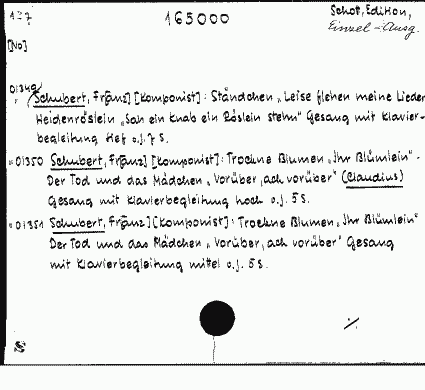 127 165000 Schot, Edition,
Einzel-Ausg.
[No]
01349
Schubert, Franz] [Komponist]: Ständchen „Leise flehen meine Lieder
Heidenröslein „Sah ein Knab ein Röslein stehn" Gesang mit Klavier-
begleitung tief o.J. 7 S.
" 01350 Schubert, Franz] [Komponist]: Trockne Blumen „Ihr Blümlein" -
Der Tod und das Mädchen „Vorüber, ach vorüber" (Claudius)
Gesang mit Klavierbegleitung hoch o.J. 5 S.
" 01351 Schubert, Franz] [Komponist]: Trockne Blumen „Ihr Blümlein"
Der Tod und das Mädchen „Vorüber, ach vorüber" Gesang
mit Klavierbegleitung mittel o.J. 5 S.